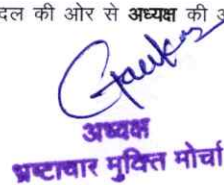 दल की ओर से अध्यक्ष की
अध्यक्ष
भ्रष्टाचार मुक्ति मोर्चा